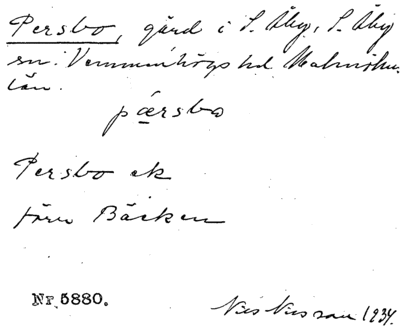 Persbo, gård i S. Åby, S. Åby
sn. Vemmenhögs hd. Malmöhus
län.
pærsbo
Persbo ek
förr Bäcken
Nr 5880.
Nils Nilsson 1934.